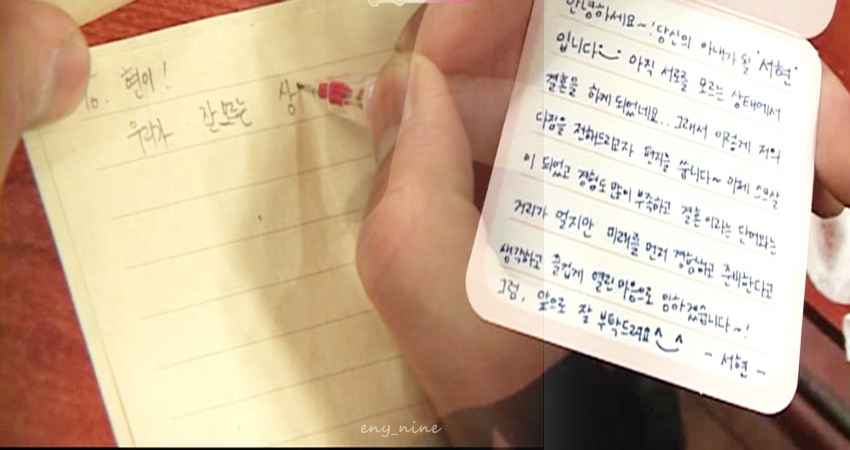 현이!
우리가 잘 모르는 상
안녕하세요~! 당신의 아내가 될 "서현"
입니다 아직 서로를 모르는 상태에서
결혼을 하게 되었네요.. 그래서 이렇게 저의
다짐을 전해드리고자 편지를 씁니다~ 이제 스므살
이 되었고 경험도 많이 부족하고 결혼이라는 단어와는
거리가 멀지만 미래를 먼저 경험하고 준비한다고
생각하고 즐겁게 열린 마음으로 임하겠습니다~!
그럼, 앞으로 잘 부탁드려요^^
- 서현 -
eny_nine